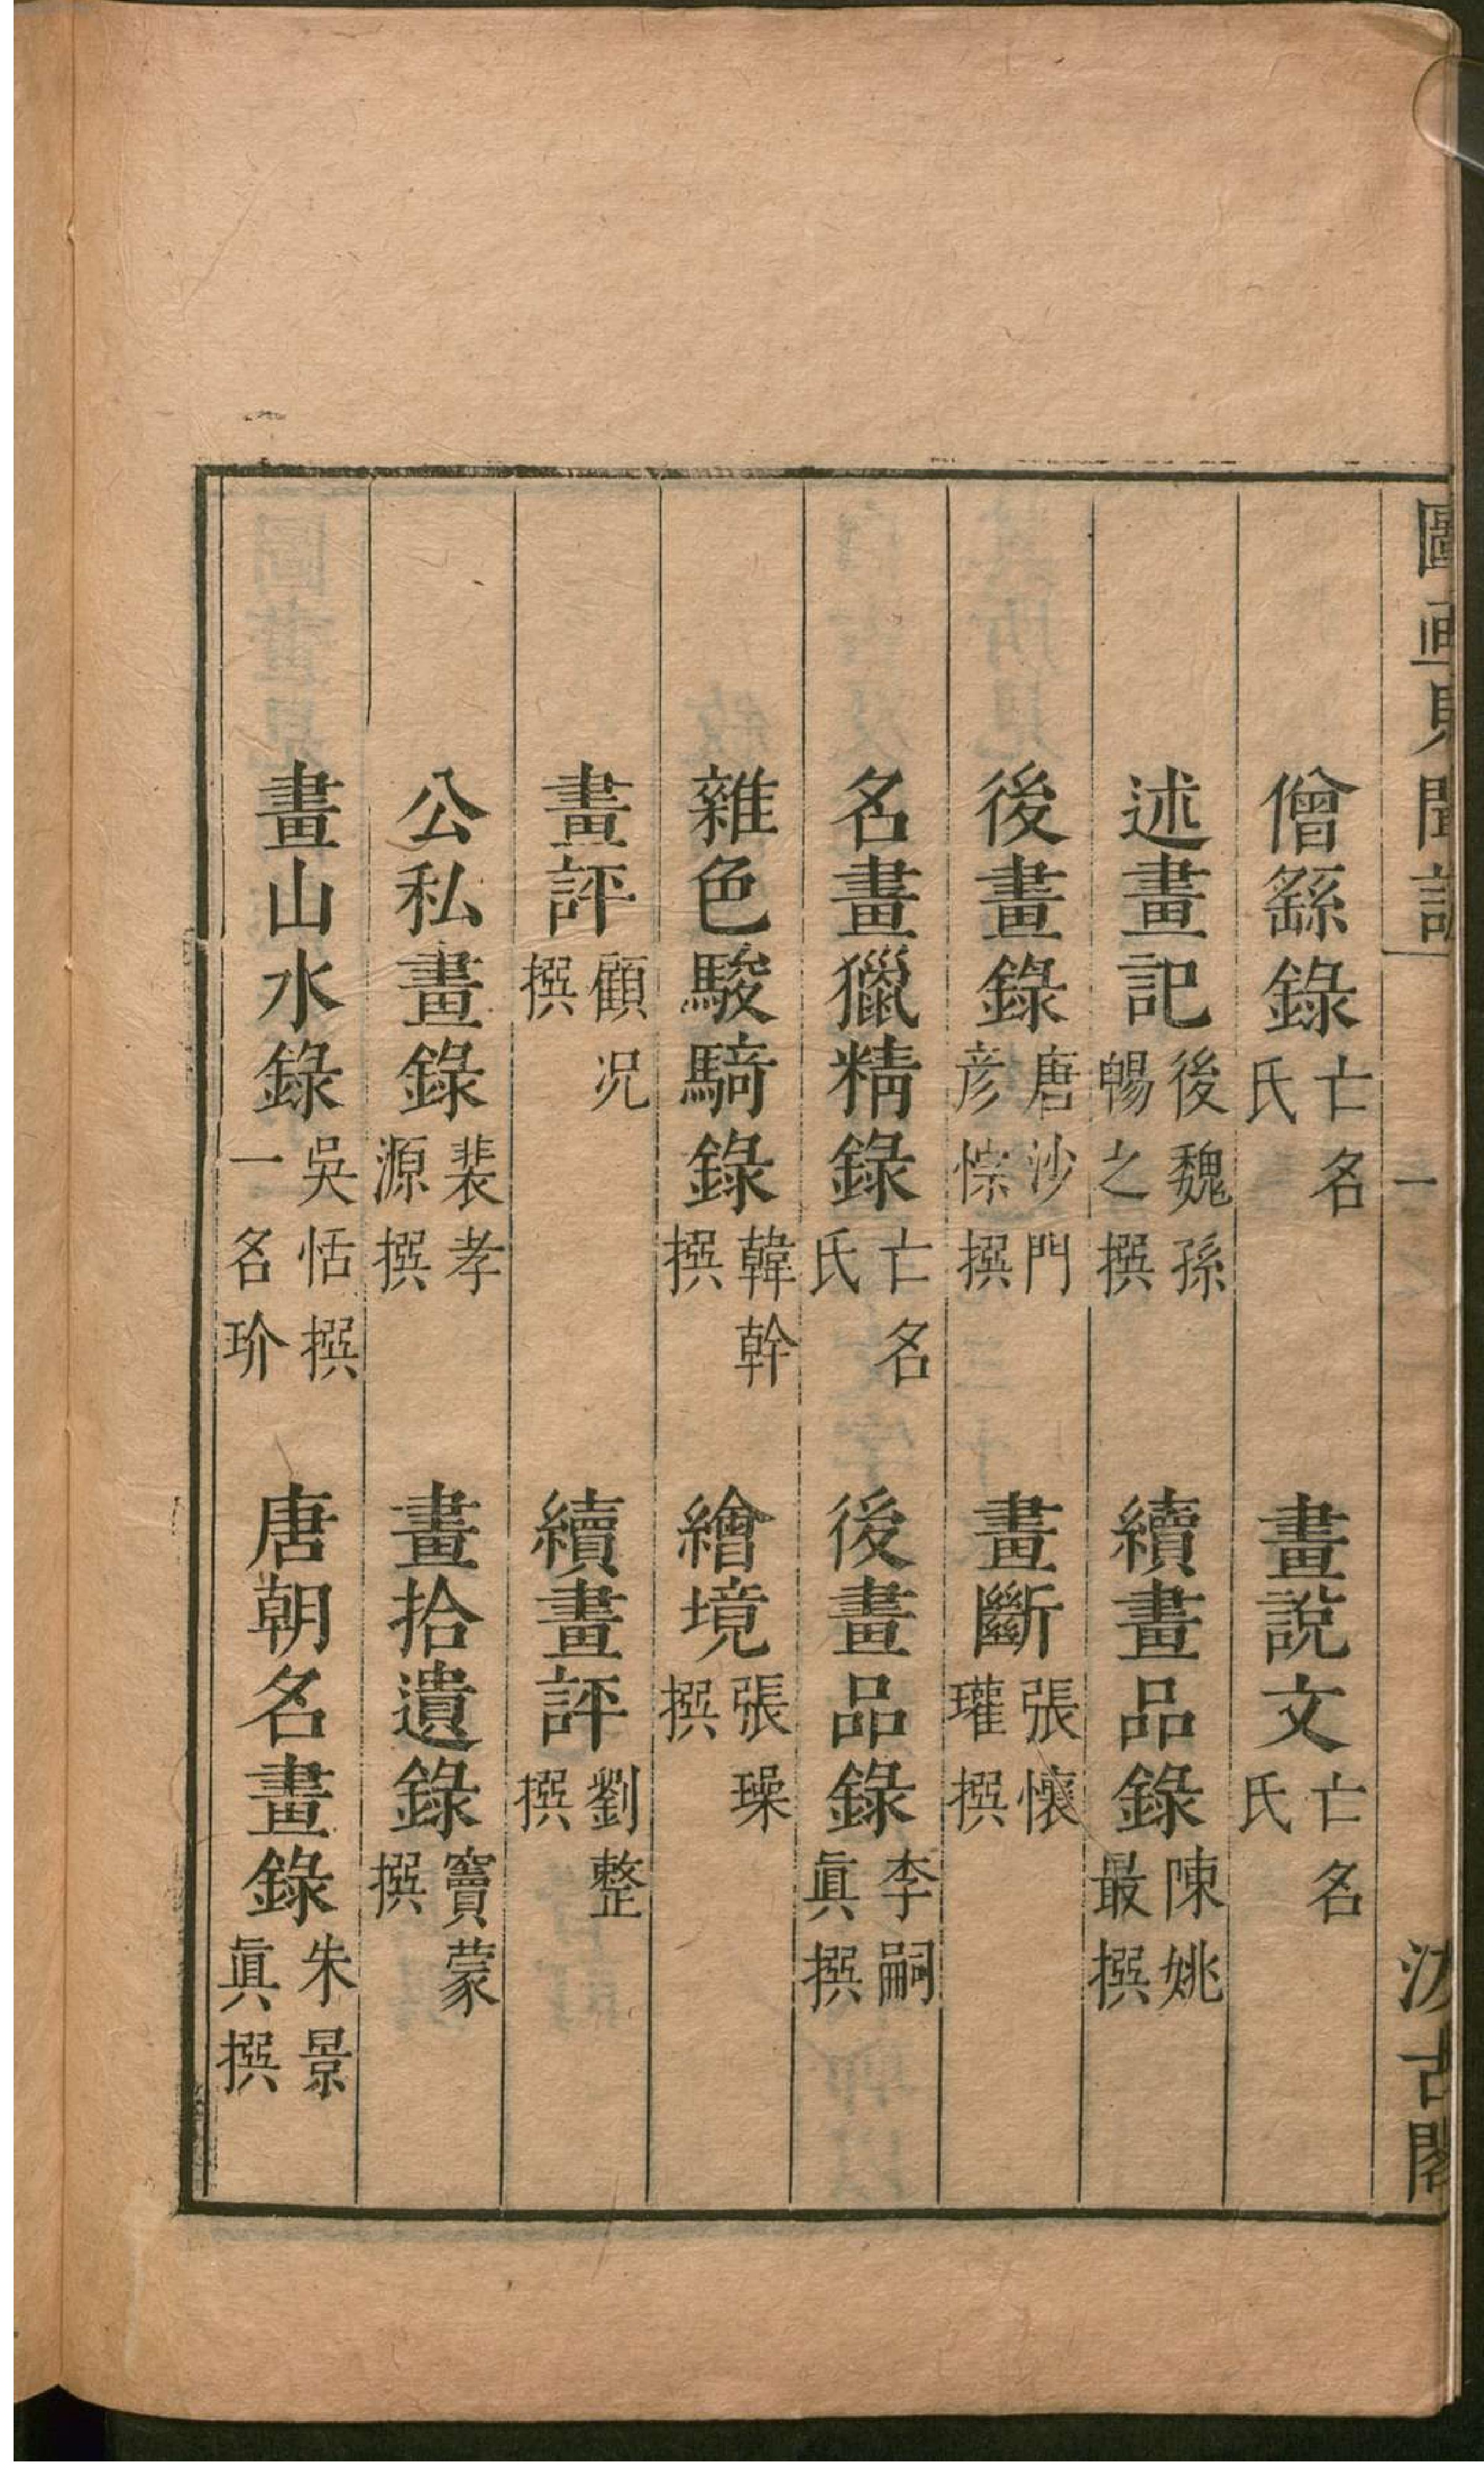 圖畫見聞誌 一 汲古閣
僧繇錄亡名氏 畫說文亡名氏
述畫記後魏孫暢之撰 續畫品錄陳姚最撰
後畫錄唐沙門彦悰撰 畫斷張懷瓘撰
名畫獵精錄亡名氏 後畫品錄李嗣眞撰
雜色駿騎錄韓幹撰 繪境張璪撰
畫評顧况撰 續畫評劉整撰
公私畫錄裴孝源撰 畫拾遺錄竇蒙撰
畫山水錄吳恬撰一名玠 唐朝名畫錄朱景眞撰